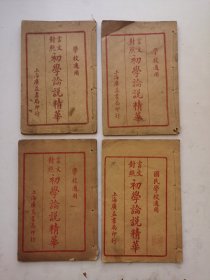 學校適用
言文對照 初學論說精華
上海廣益書局印行
學校適用
言文對照 初學論說精華
上海廣益書局印行
學校適用
言文對照 初學論說精華
上海廣益書局印行
國民學校適用
言文對照 初學論說精華
上海廣益書局印行